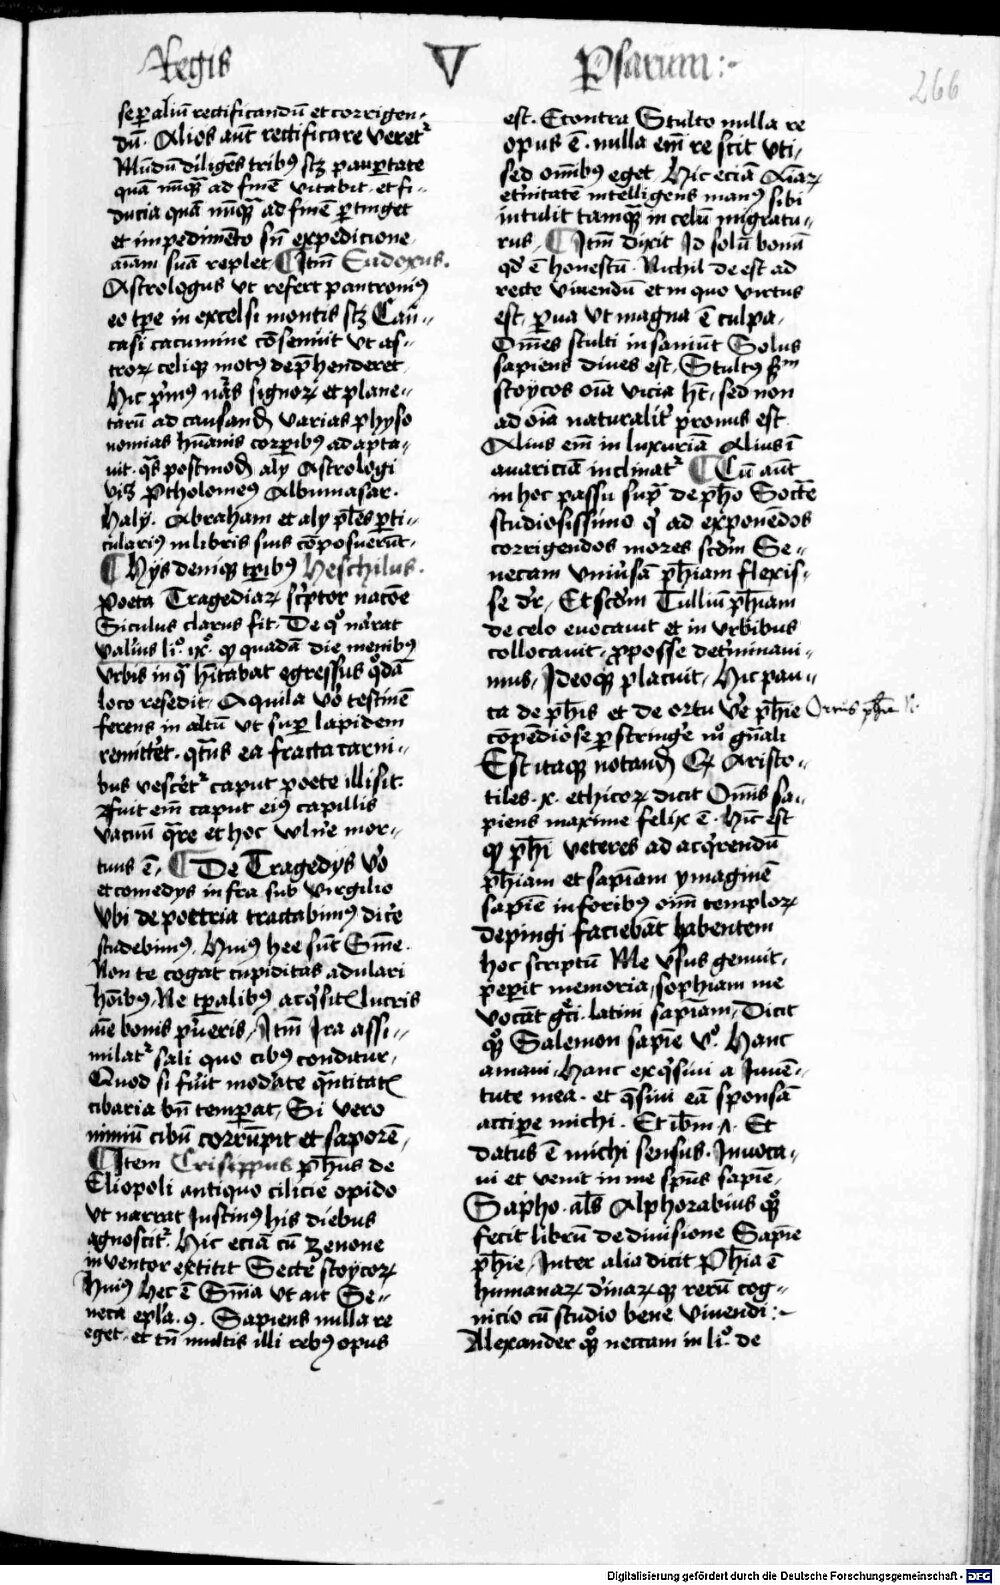 Regis V Psarum :-
266
se p aliū rectificandū et corrigen-
dū. Alios aūt rectificare veretr
Mūdū diligēs tribus scz paupertate
quā nūqꝫ ad finē vitabit. et fi-
ducia quā nūqꝫ ad finē ptinget
et impedimēto sn̄ expedicione
aīam suā replet ¶ Itm̄ Eudoxus.
Astrologus ut refert pantronius
eo tpe in excelsi montis scz Cau-
casi cacumine cōsenuit ut as-
troꝝ celiqꝫ motus deprehenderet
Hic prīus nās signoꝝ et plane-
tarū ad causandū varias physo
nomias hūanis corpibus adapta-
uit. qās postmodū aly Astrologi
viꝫ Ptholomeus Albumasar.
Haly. Abraham et aly plēs pti-
cularius in libris suis cōposuerūt.
¶ Hys deniqꝫ tpibus Heschilus.
Poeta Tragediaꝝ scptor natōe
Siculus clarus fit. De qo narrat
Valius li. ix. qꝫ quadā die menibus
Urbis in qā hītabat egressus qodā
loco resedit. Aquila vo testinē
ferens in altū ut sup lapidem
remittet. qātus ea fracta carni-
bus vescetr caput poete illisit.
Fuit em̄ caput eius capillis
vacuū qāre et hoc vulne mor-
tuus ē. ¶ De Tragedys vo
et comedys infra sub Virgilio
Ubi de poetria tractabimus dice
studebimus. Huius hee sūt Sn̄ie.
Non te cogat cupiditas adulari
hōibus. Ne tpalibus acqsitꝫ lucris
aīe bonis priueris. Itm̄ Ira assi-
milatr sali quo cibus conditur.
Quod si fuit modate qāntitatꝫ
cibaria bn̄ temperat. Si vero
nimiū cibū corrūpit et saporē.
¶ Item Crisippus phūs de
Eliopoli antiquo cilicie opido
ut narrat Justinus his diebus
agnoscitr. Hic eciā cū Zenone
inventor extitit Secte stoycoꝝ
Huius hec ē Sn̄ia ut ait Se-
neca epla. 9. Sapiens nulla re
eget. et tn̄ multis illi rebus opus
est. Econtra Stulto nulla re
opus ē. nulla em̄ re scit uti.
sed omībus eget. Hic eciā Aīaꝝ
etnitatē intelligens manus sibi
intulit tamqꝫ in celū migratu-
rus. ¶ Itm̄ dixit Id solū bonū
qd ē honestū. Nichil deest ad
recte viuendū et in quo virtus
est. pua ut magna ē culpa.
Omēs stulti insaniūt Solus
sapiens diues est. Stultus scdm
stoycos oīa vicia ht. sed non
ad oīa naturalit pronus est
Alius em̄ in luxuriā Alius ī
auariciā inclinatr ¶ Cū aūt
in hoc passu supra de pho Socte
studiosissimo qi ad exponēdos
corrigendos mores scdm Se-
necam Uniusā phīam flexis-
se dr. Et scdm Tullium phīam
de celo euocauit et in urbibus
collocauit. proposse detminaui-
mus. Ideoqꝫ placuit. Hic pau-
ca de phīs et de ortu ve phīe
cōpendiose pstringe mo gnāli
Est itaqꝫ notandū Qꝫ Aristo-
tiles. x. ethicoꝝ dicit Omīs sa-
piens maxime felix ē. Hīc est
qꝫ phī veteres ad acqrendū
phīam et sapīam ymaginē
sapīe in foribus oīm temploꝝ
depingi faciebāt habentem
hoc scriptū Me usus genuit.
peperit memoria. sophiam me
vocāt grci. latini sapīam. Dicit
qoqꝫ Salemon sapīe vo. Hanc
amaui. Hanc exqsiui a Juuē-
tute mea. et qsiui eā sponsā
accipe michi. Et ibm. Et
datus ē michi sensus. Inuoca-
ui et venit in me spūs sapīe.
Sapho. als Alphorabius qoqꝫ
fecit librū de diuisione Sapīe
phīe. Inter alia dicit Phīa ē
humanaꝝ dinaꝝqꝫ rerū cog-
nicio cū studio bene viuendi :-
Alexander qoqꝫ neccam in li. de
Digitalisierung gefördert durch die Deutsche Forschungsgemeinschaft - DFG